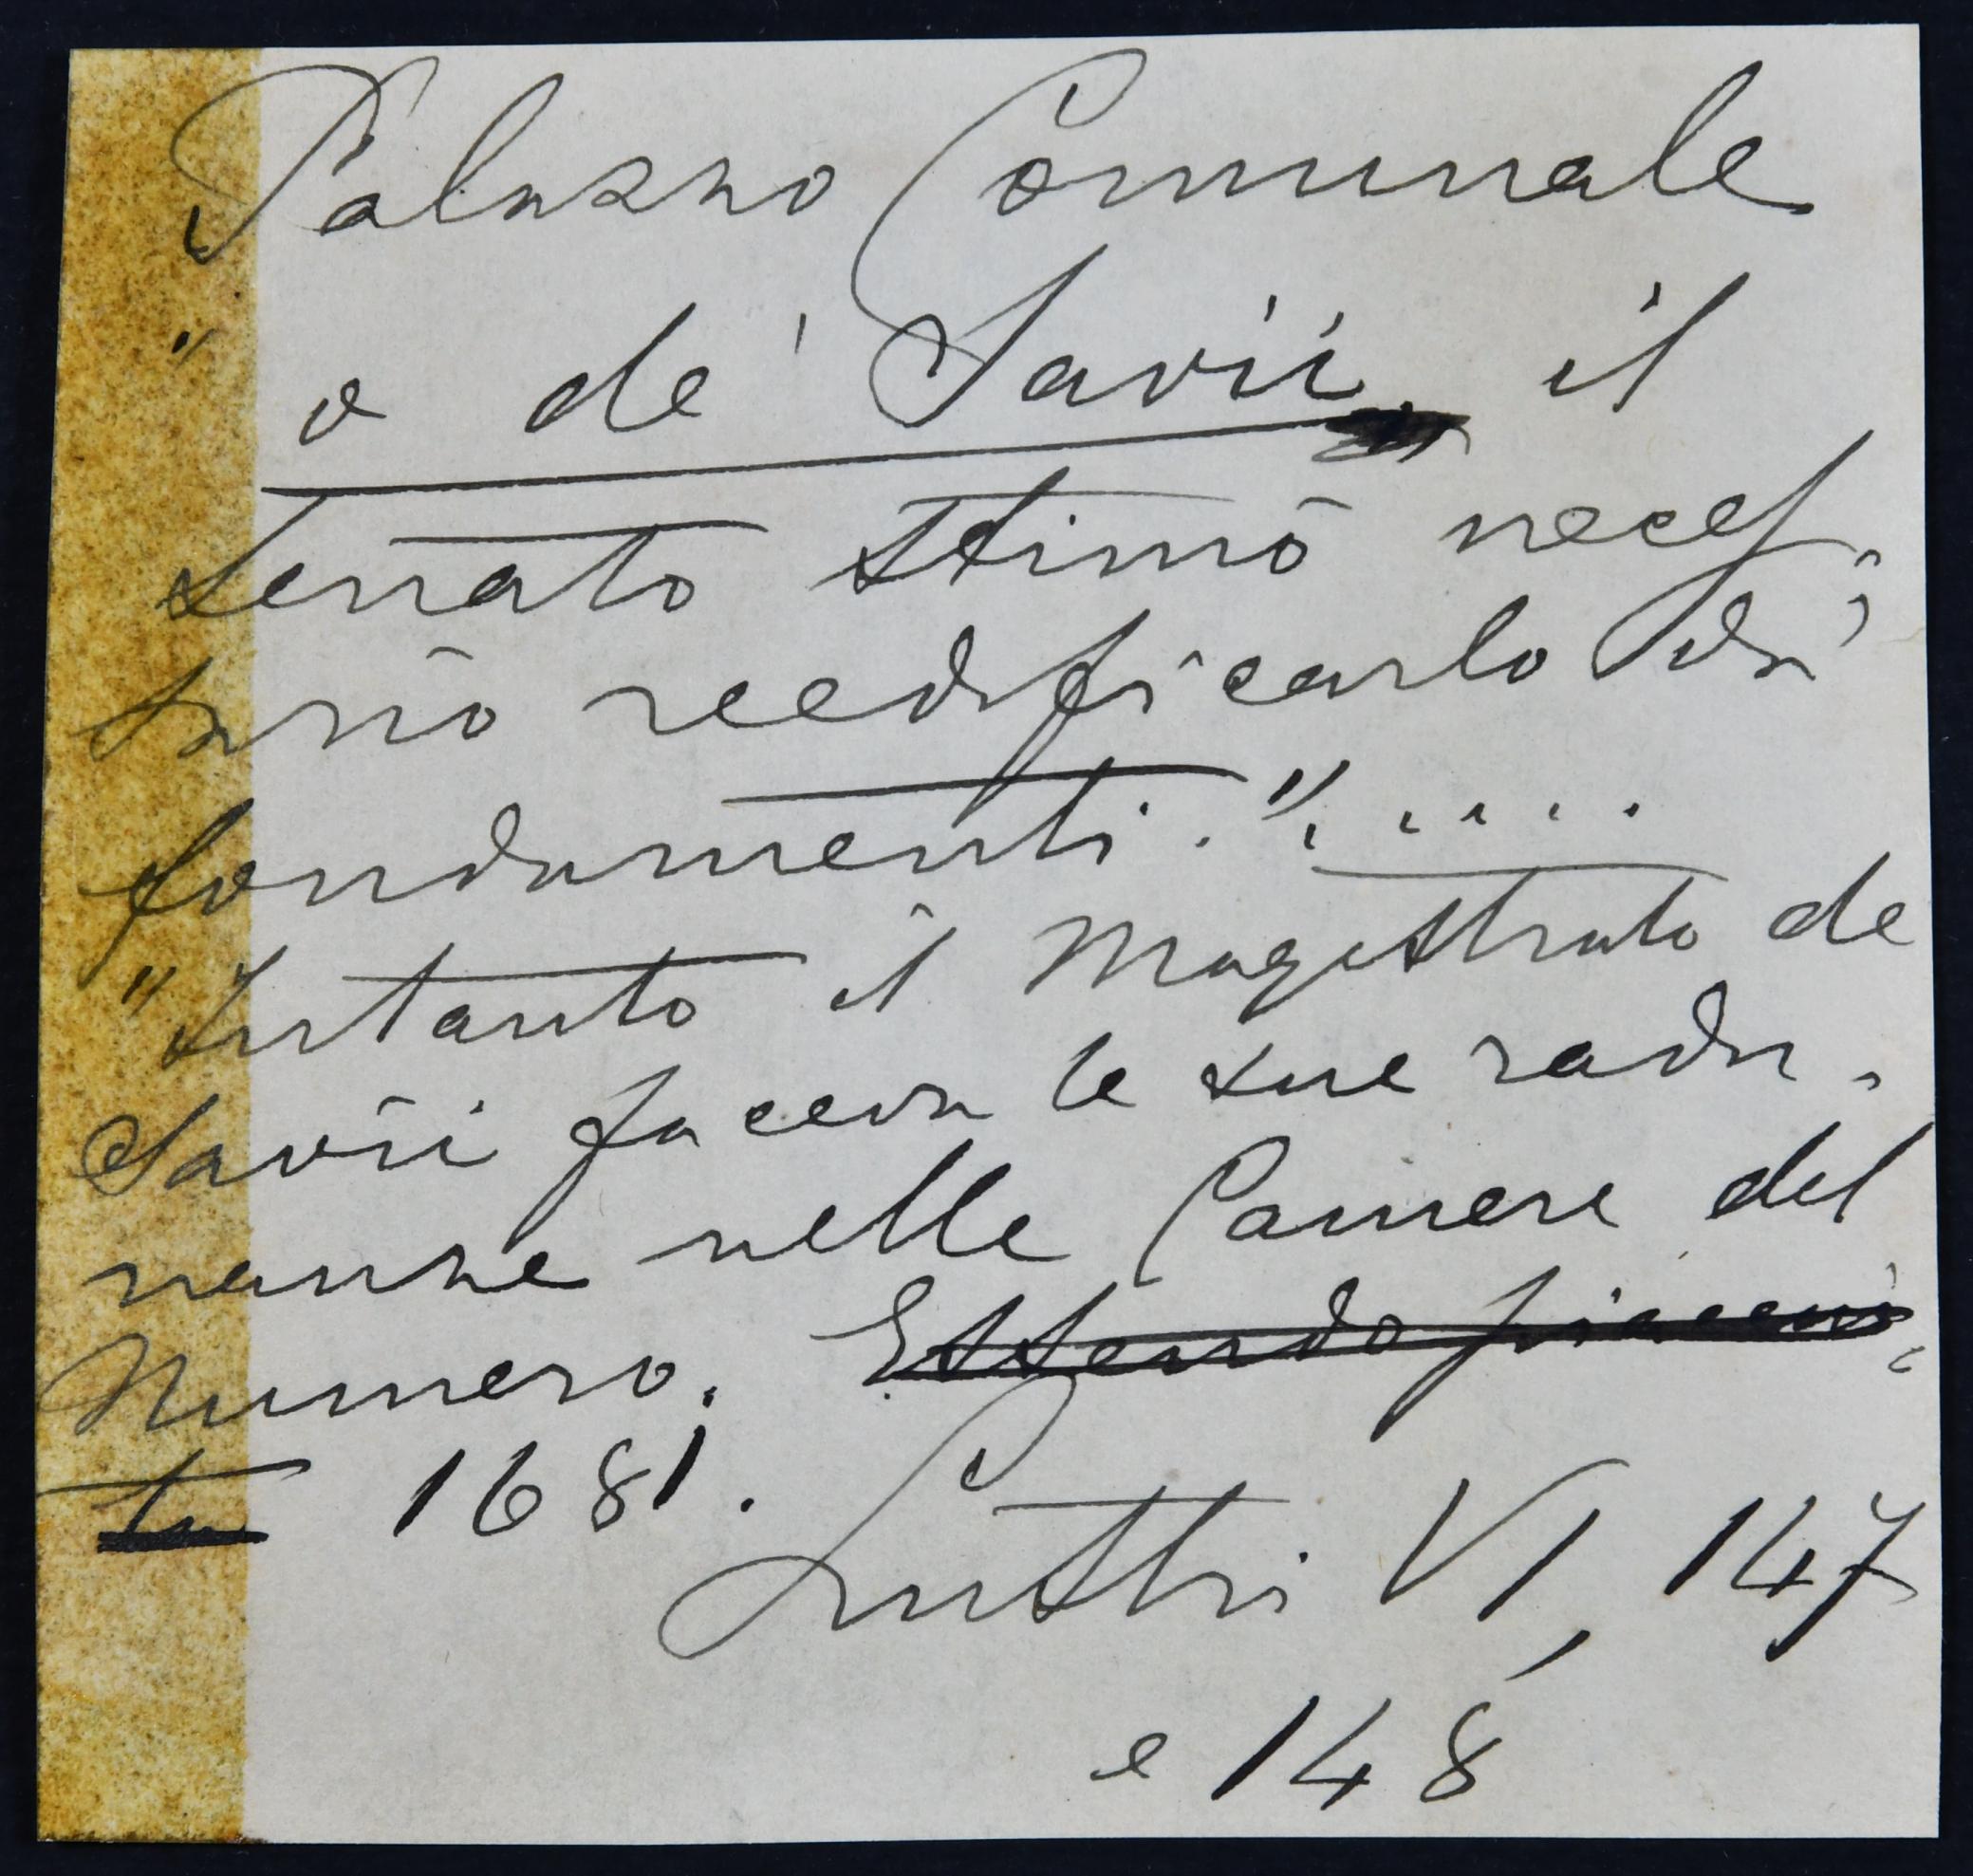 Palazzo Comunale
" o de' Savii, il
Senato stimò neces-
sario reedificarlo da'
fondamenti." .....
"Intanto il Magistrato de
Savii faceva le sue radu-
nanze nelle Camere del
Numero. Essendo piaciu-
ta 1681.
Lustri VI, 147
e 148